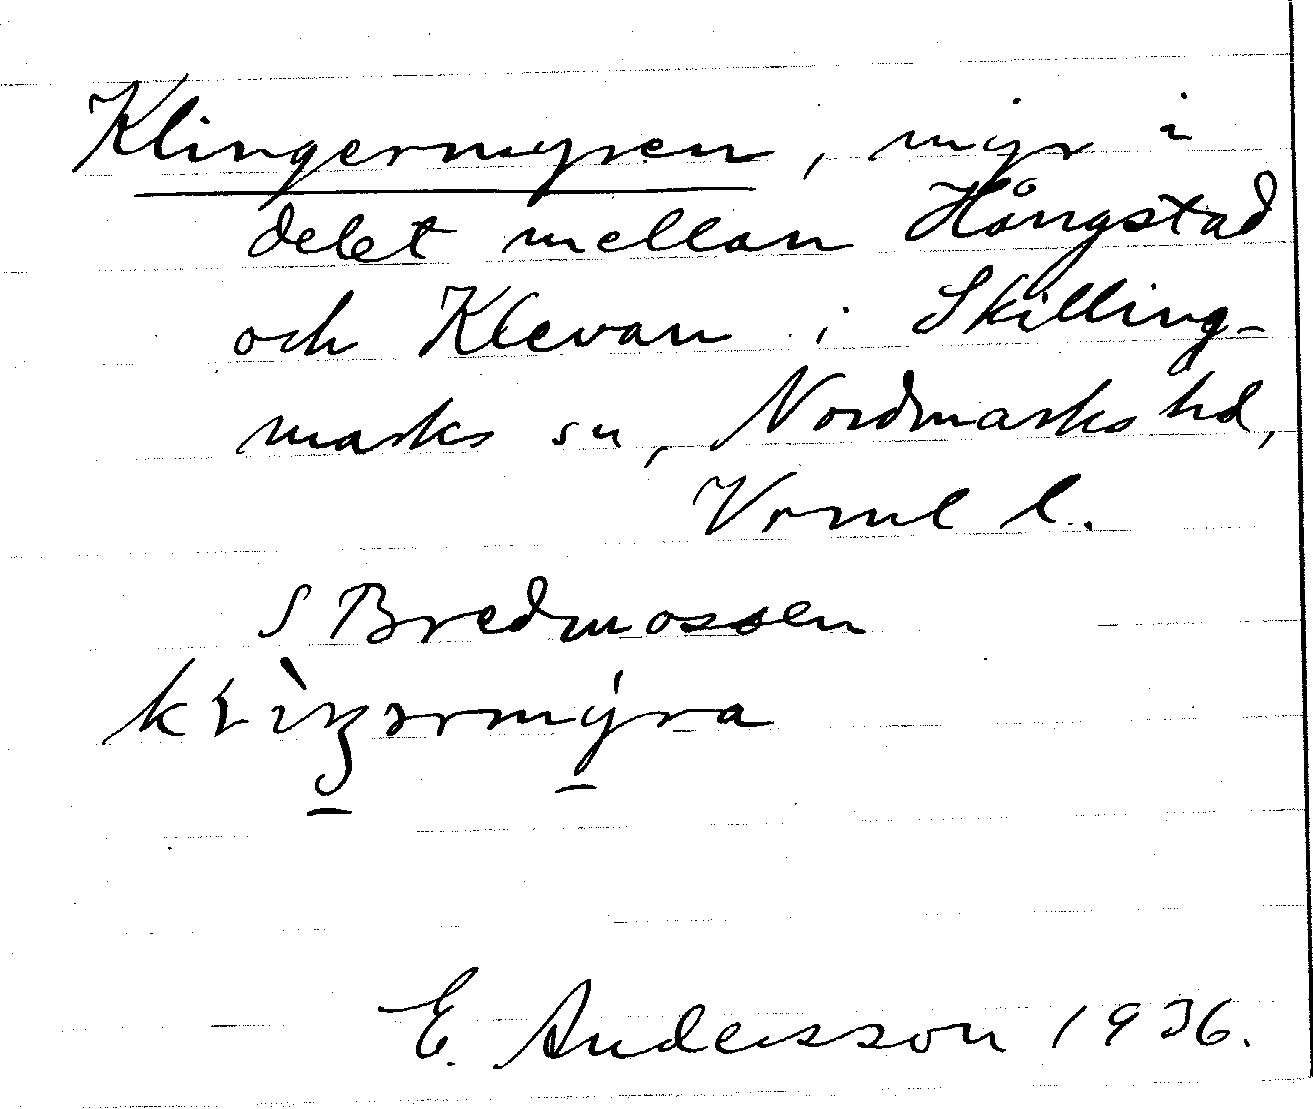 Klingermyren, myr i
delet mellan Hångstad
och Klevan i Skilling-
marks sn, Nordmarks hd,
Vrml l.
S Bredmossen
E. Andersson 1936.